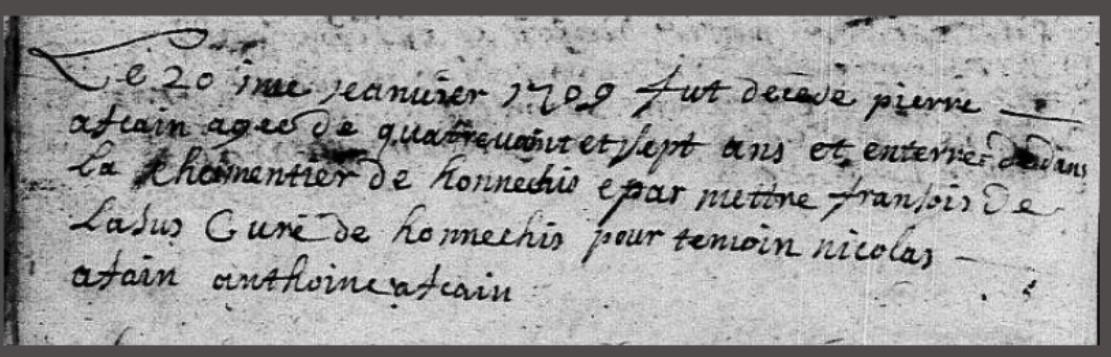 Le 20 ime jeanuier 1709 fut decede pierre
afcain agee de quatreuaint et sept ans et enterrer dedans
La chementier de honnechis epar mettre fransois de
Lasus Curé de honnechis pour temoin nicolas
afain anthoine afcain